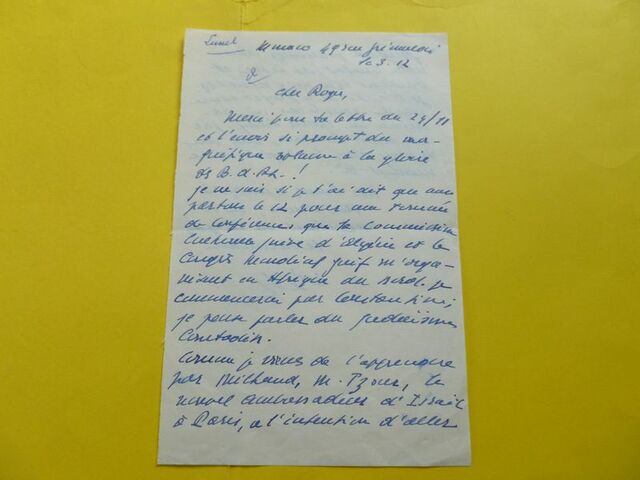 Lunel
Monaco 49 rue Grimaldi
le 3. 12
cher Roger,
Merci pour ta lettre du 29/11
et l'envoi si prompt du ma-
gnifique volume à la gloire
des B. d. Rh. !
je ne sais si je t'ai dit que nous
partons le 12 pour une tournée
de Conférences que la Commission
Culturelle juive d'Algérie et le
Congrès Mondial Juif m'orga-
nisent en Afrique du Nord. je
commencerai par Constantine ;
je pense parler du judaïsme
Comtadin.
Comme je viens de l'apprendre
par Milhaud, M. Tzour, le
nouvel ambassadeur d'Israël
à Paris, a l'intention d'aller